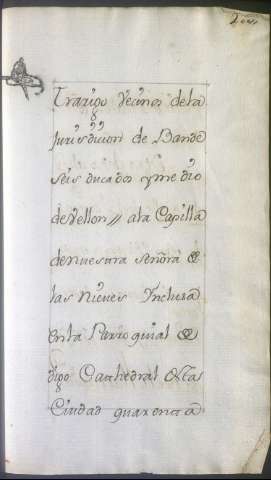 Trarigo Vecinos dela
Jurisdicion de Bande
seis ducados y medio
de Vellon // ala Capilla
de nuestra señora de
las Nieves Inclusa
en la Parroquial de
digo Cathedral de las
Ciudad quarenta